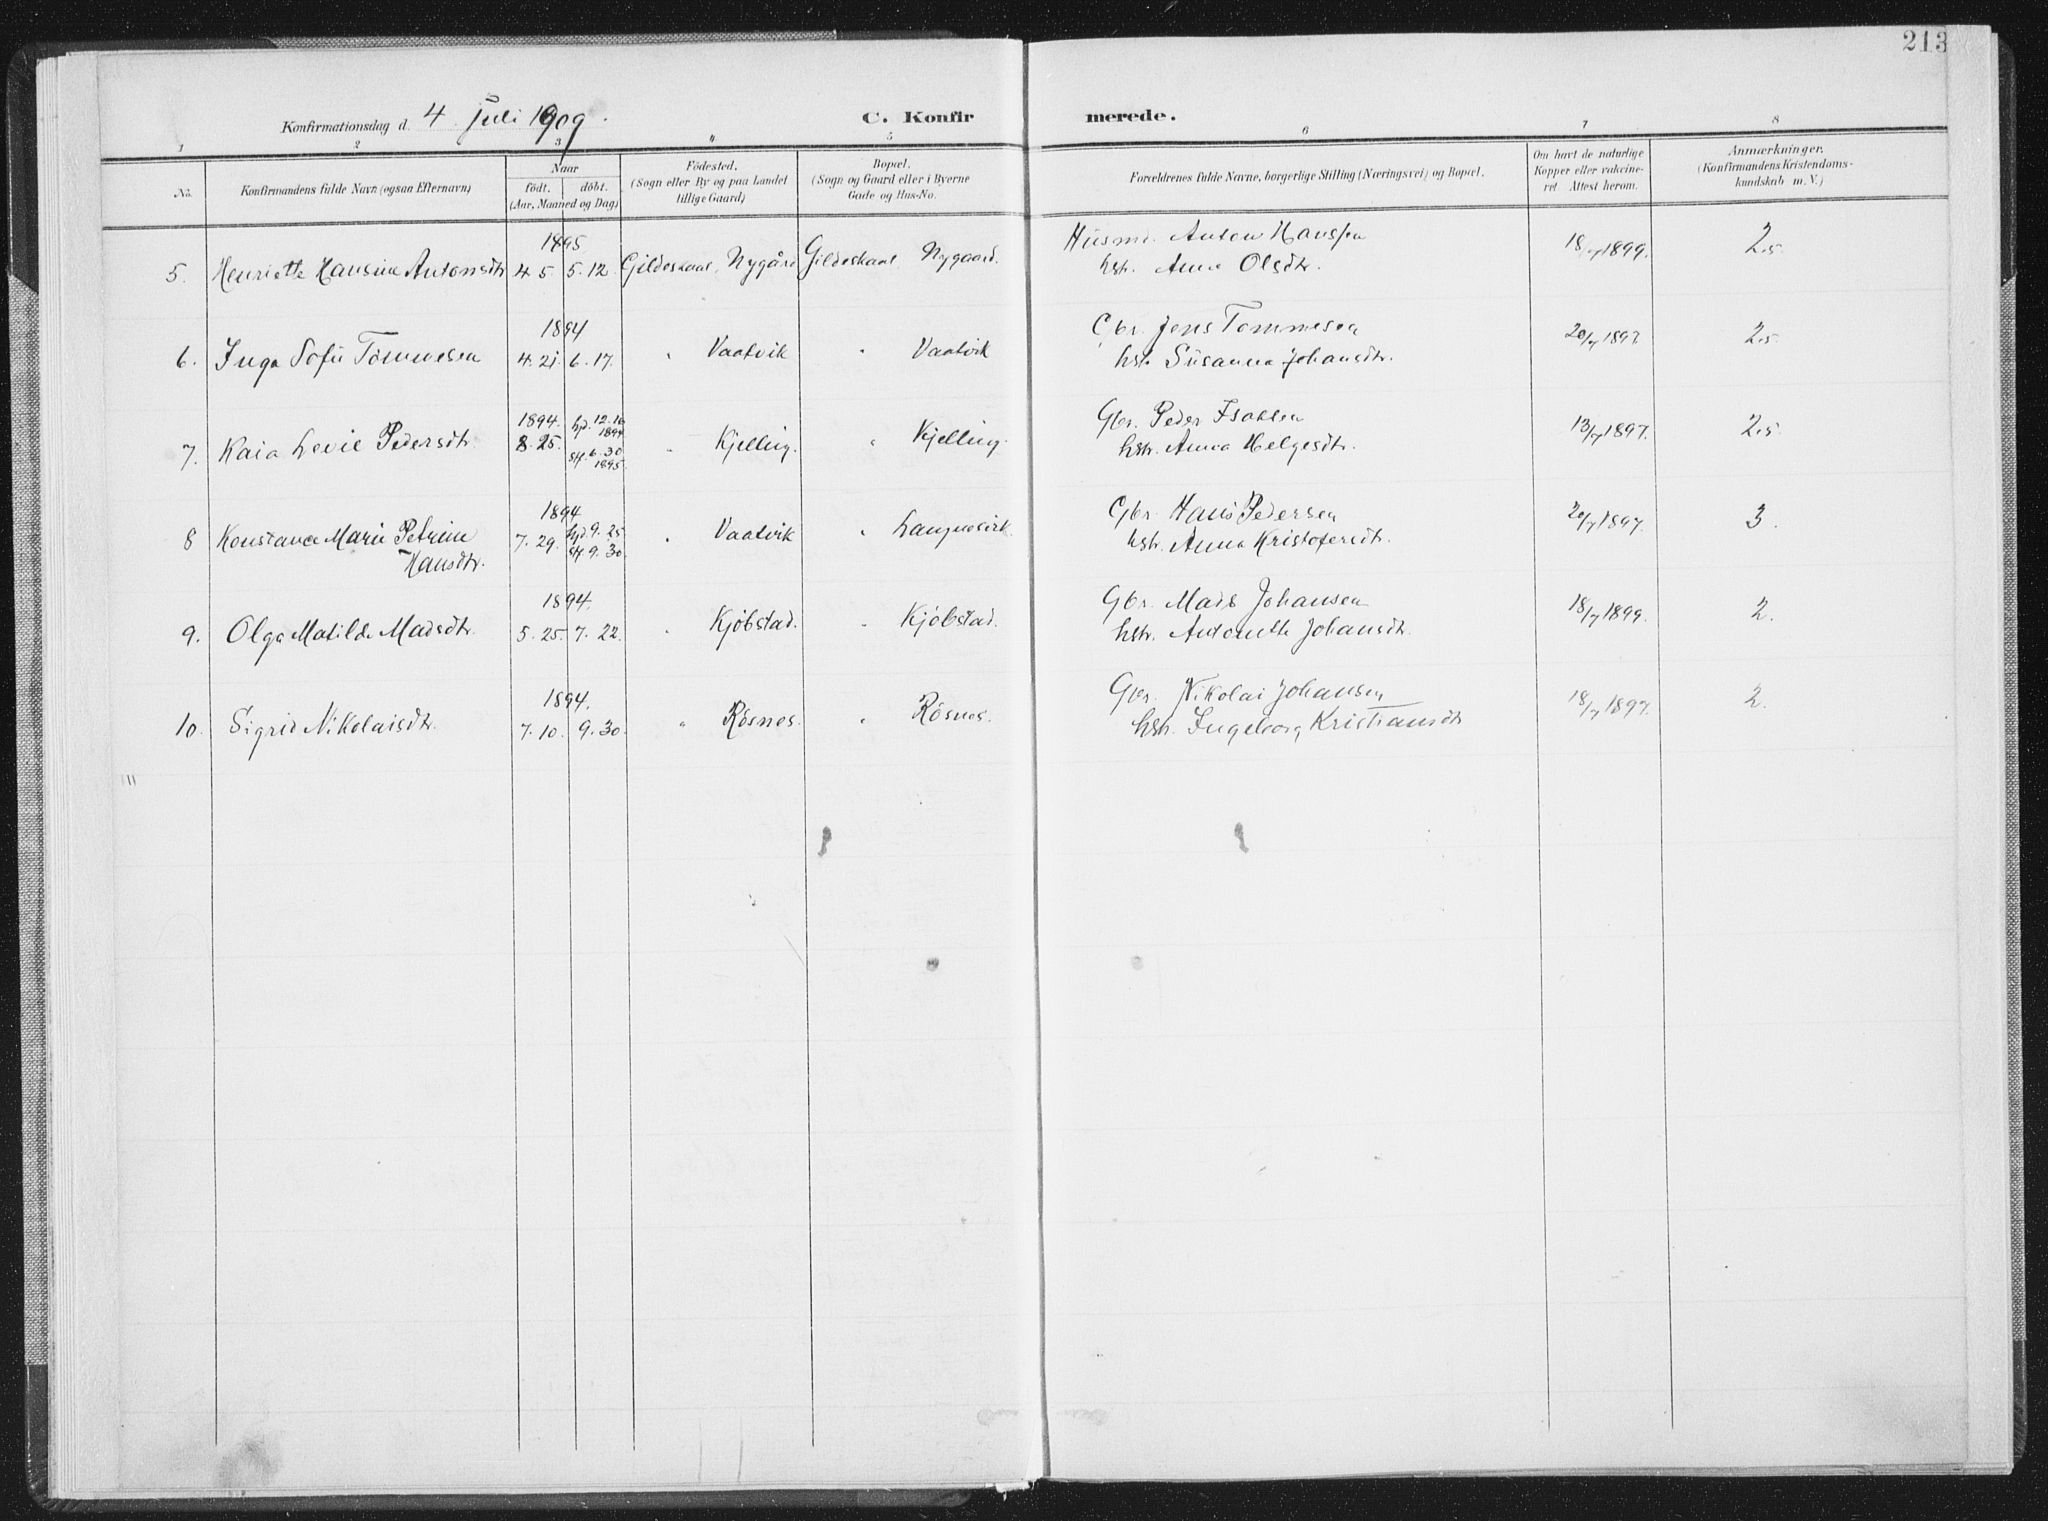 213
Konfirmationsdag d. 4. juli 1909. C. Konfirmerede.
1 2 3 " 5 6 7 8
No.
Konfirmandens fulde Navn (ogsaa Efternavn)
Naar
født. døbt.
(Aar, Maaned og Dag)
Fødested.
(Sogn eller By og paa Landet
tillige Gaard)
Bopæl.
(Sogn og Gaard eller i Byerne
Gade og Hus-No.
Forældrenes fulde Navne, borgerlige Stilling (Næringsvei) og Bopæl.
Om havt de naturlige
Kopper eller vakcine-
ret Attest herom.
Anmærkninger.
(Konfirmandens Kristendoms-
kundskab m. V.)
1895 Husmd. Anton Hanssen
5. Henriette Hansine Antonsdtr 4 5 5.12. Gildeskaal, Nygård Gildeskaal Nygaard. hstr. Anna Olsdtr. 18/7 1899. 2.5
1894 Gbr. Jens Tommesen
6. Inga Sofie Tommesen 4.21. 6.17. " Vaatvik " Vaatvik hstr. Susanna Johansdtr. 20/7 2.5
1894. hjd. 12.16 1894 Gbr. Peder Isaksen
7. Kaia Levie Pedersdtr. 8.25. st. 6.30 1895. " Kjelling. " Kjelling. hstr. Anna Helgesdtr. 13/7 1897. 2.5
1894 hjd. 9.25 Gbr. Hans Pedersen
8 Konstance Marie Petrine 7.29. st 9.30. " Vaatvik " hstr. Anna Kristofersdtr. 20/7 1897. 3.
Hansdtr.
1894. Gbr. Mads Johansen
9. Olga Matilde Madsdtr. 5.25. 7.22. " Kjøbstad. " Kjøbstad. hstr. Antonette Johansdtr. 18/7 1899. 2.
1894. Gbr. Nikolai Johansen
10. Sigrid Nikolaisdtr. 7.10. 9.30. " Røsnes. " Røsnes. hstr. Ingeborg Kristiansdtr 18/7 1897. 2.